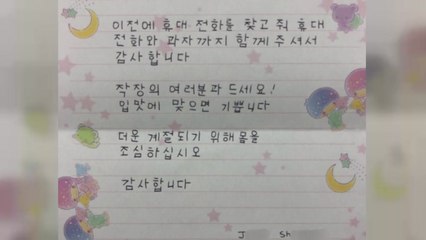 이전에 휴대 전화를 찾고 줘 휴대
전화와 과자까지 함께 주셔서
감사 합니다
작장의 여러분과 드세요!
입맛에 맞으면 기쁩니다
더운 계절되기 위해 몸을
조심하십시오
감사합니다
J Sh